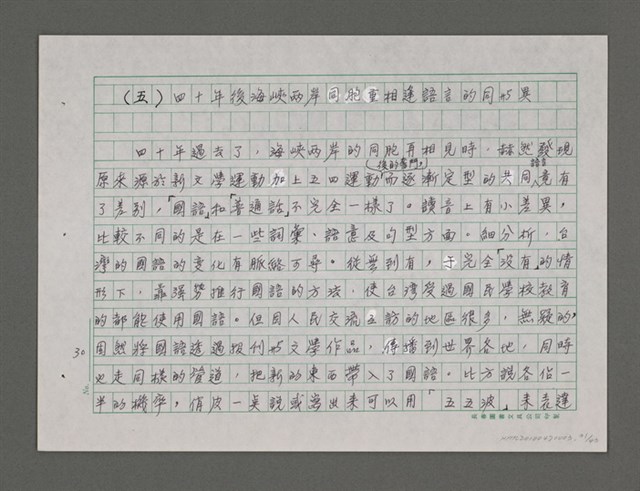 （五）四十年後海峽兩岸同胞重相逢語言的同與異
四十年過去了，海峽兩岸的同胞再相見時，赫然發現
原來源於新文學運動加上五四運動而逐漸定型的共同語言竟有
了差別，「國語」和「普通話」不完全一樣了。讀音上有小差異，
比較不同的是在一些詞彙、語意及句型方面。細分析，台
灣的國語的變化有脈絡可尋。從無到有，于完全「沒有」的情
形下，靠強勢推行國語的方法，使台灣受過國民學校教育
的都能使用國語。但因人民交流互訪的地區很多，無疑的，
固然將國語透過報刊與文學作品，傳播到世界各地，同時
也走同樣的管道，把新的東西帶入了國語。比方說各佔一
半的機率，俏皮一桌說或寫出來可以用「五五波」來表達
30
No.